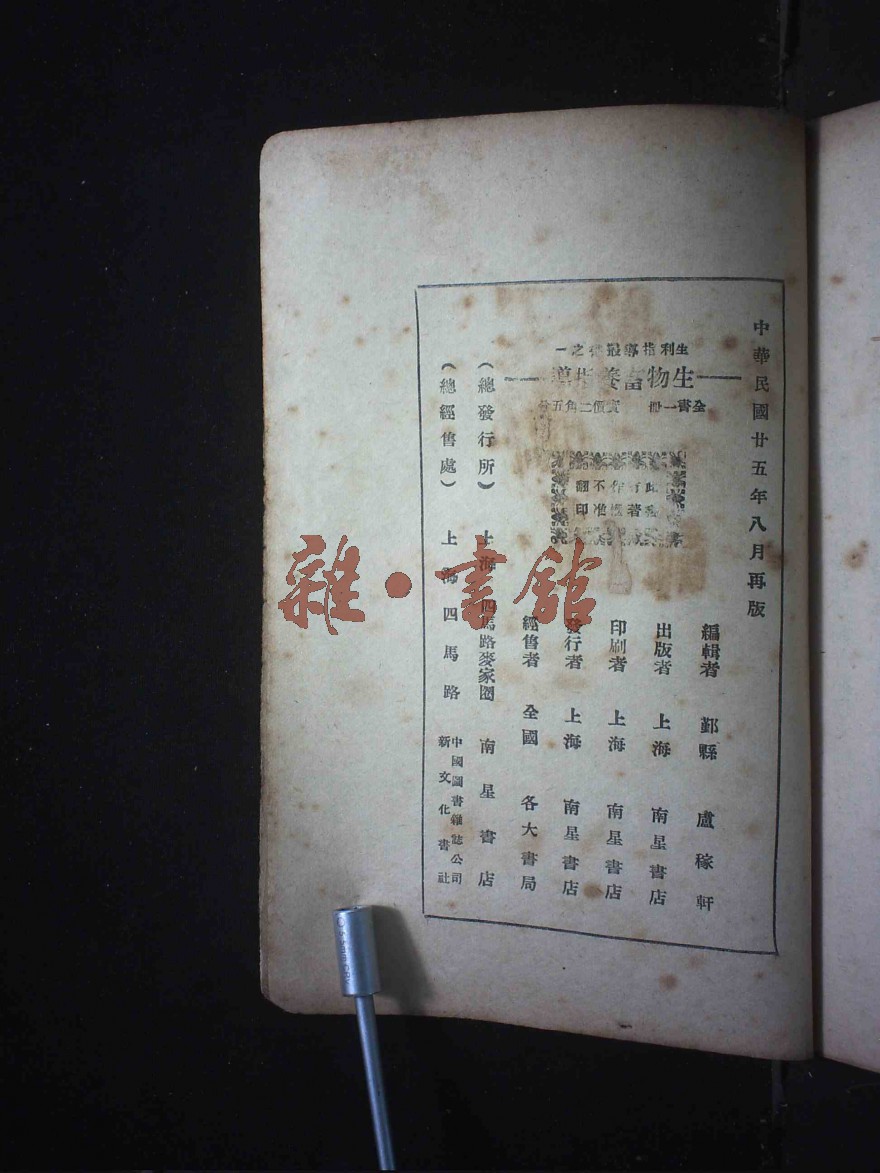 中華民國廿五年八月再版
生利指導叢書之一
生物畜養指導
全書一冊 實價二角五分
此書有著作權不准翻印
編輯者 鄞縣 盧稼軒
出版者 上海 南星書店
印刷者 上海 南星書店
發行者 上海 南星書店
經售者 全國 各大書局
(總發行所) 上海四馬路麥家圈 南星書店
(總經售處) 上海四馬路 中國圖書雜誌公司
新文化書社
雜·書館